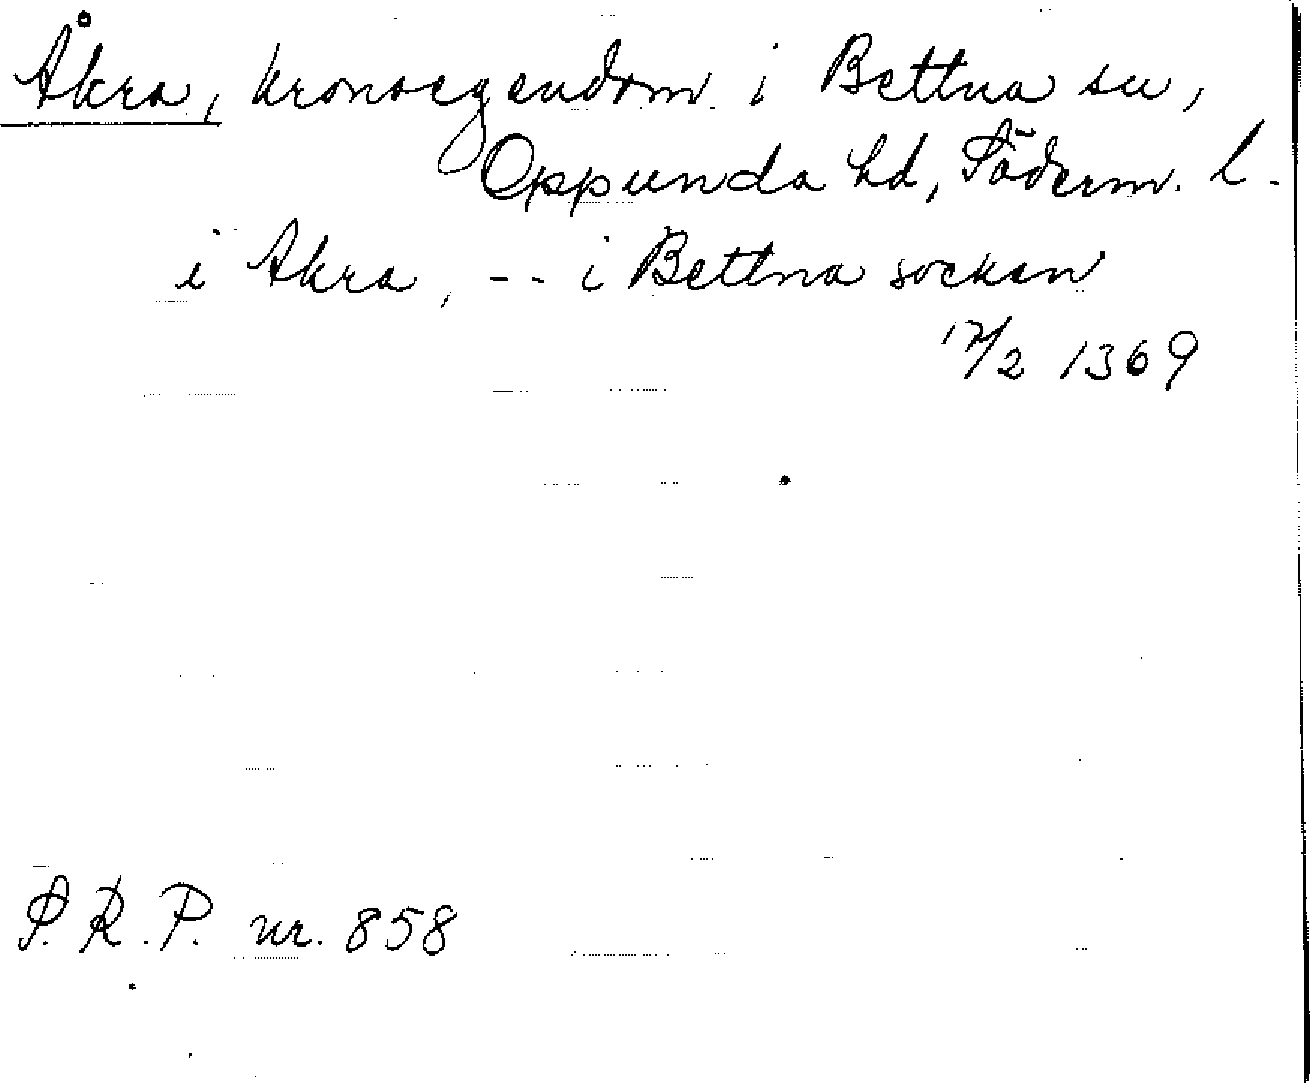 Åkra, kronoegendom i Bettna sn,
Oppunda hd, Söderm. l.
i Akra, -- i Bettna sockan
12/2 1369
S.R.P. nr. 858